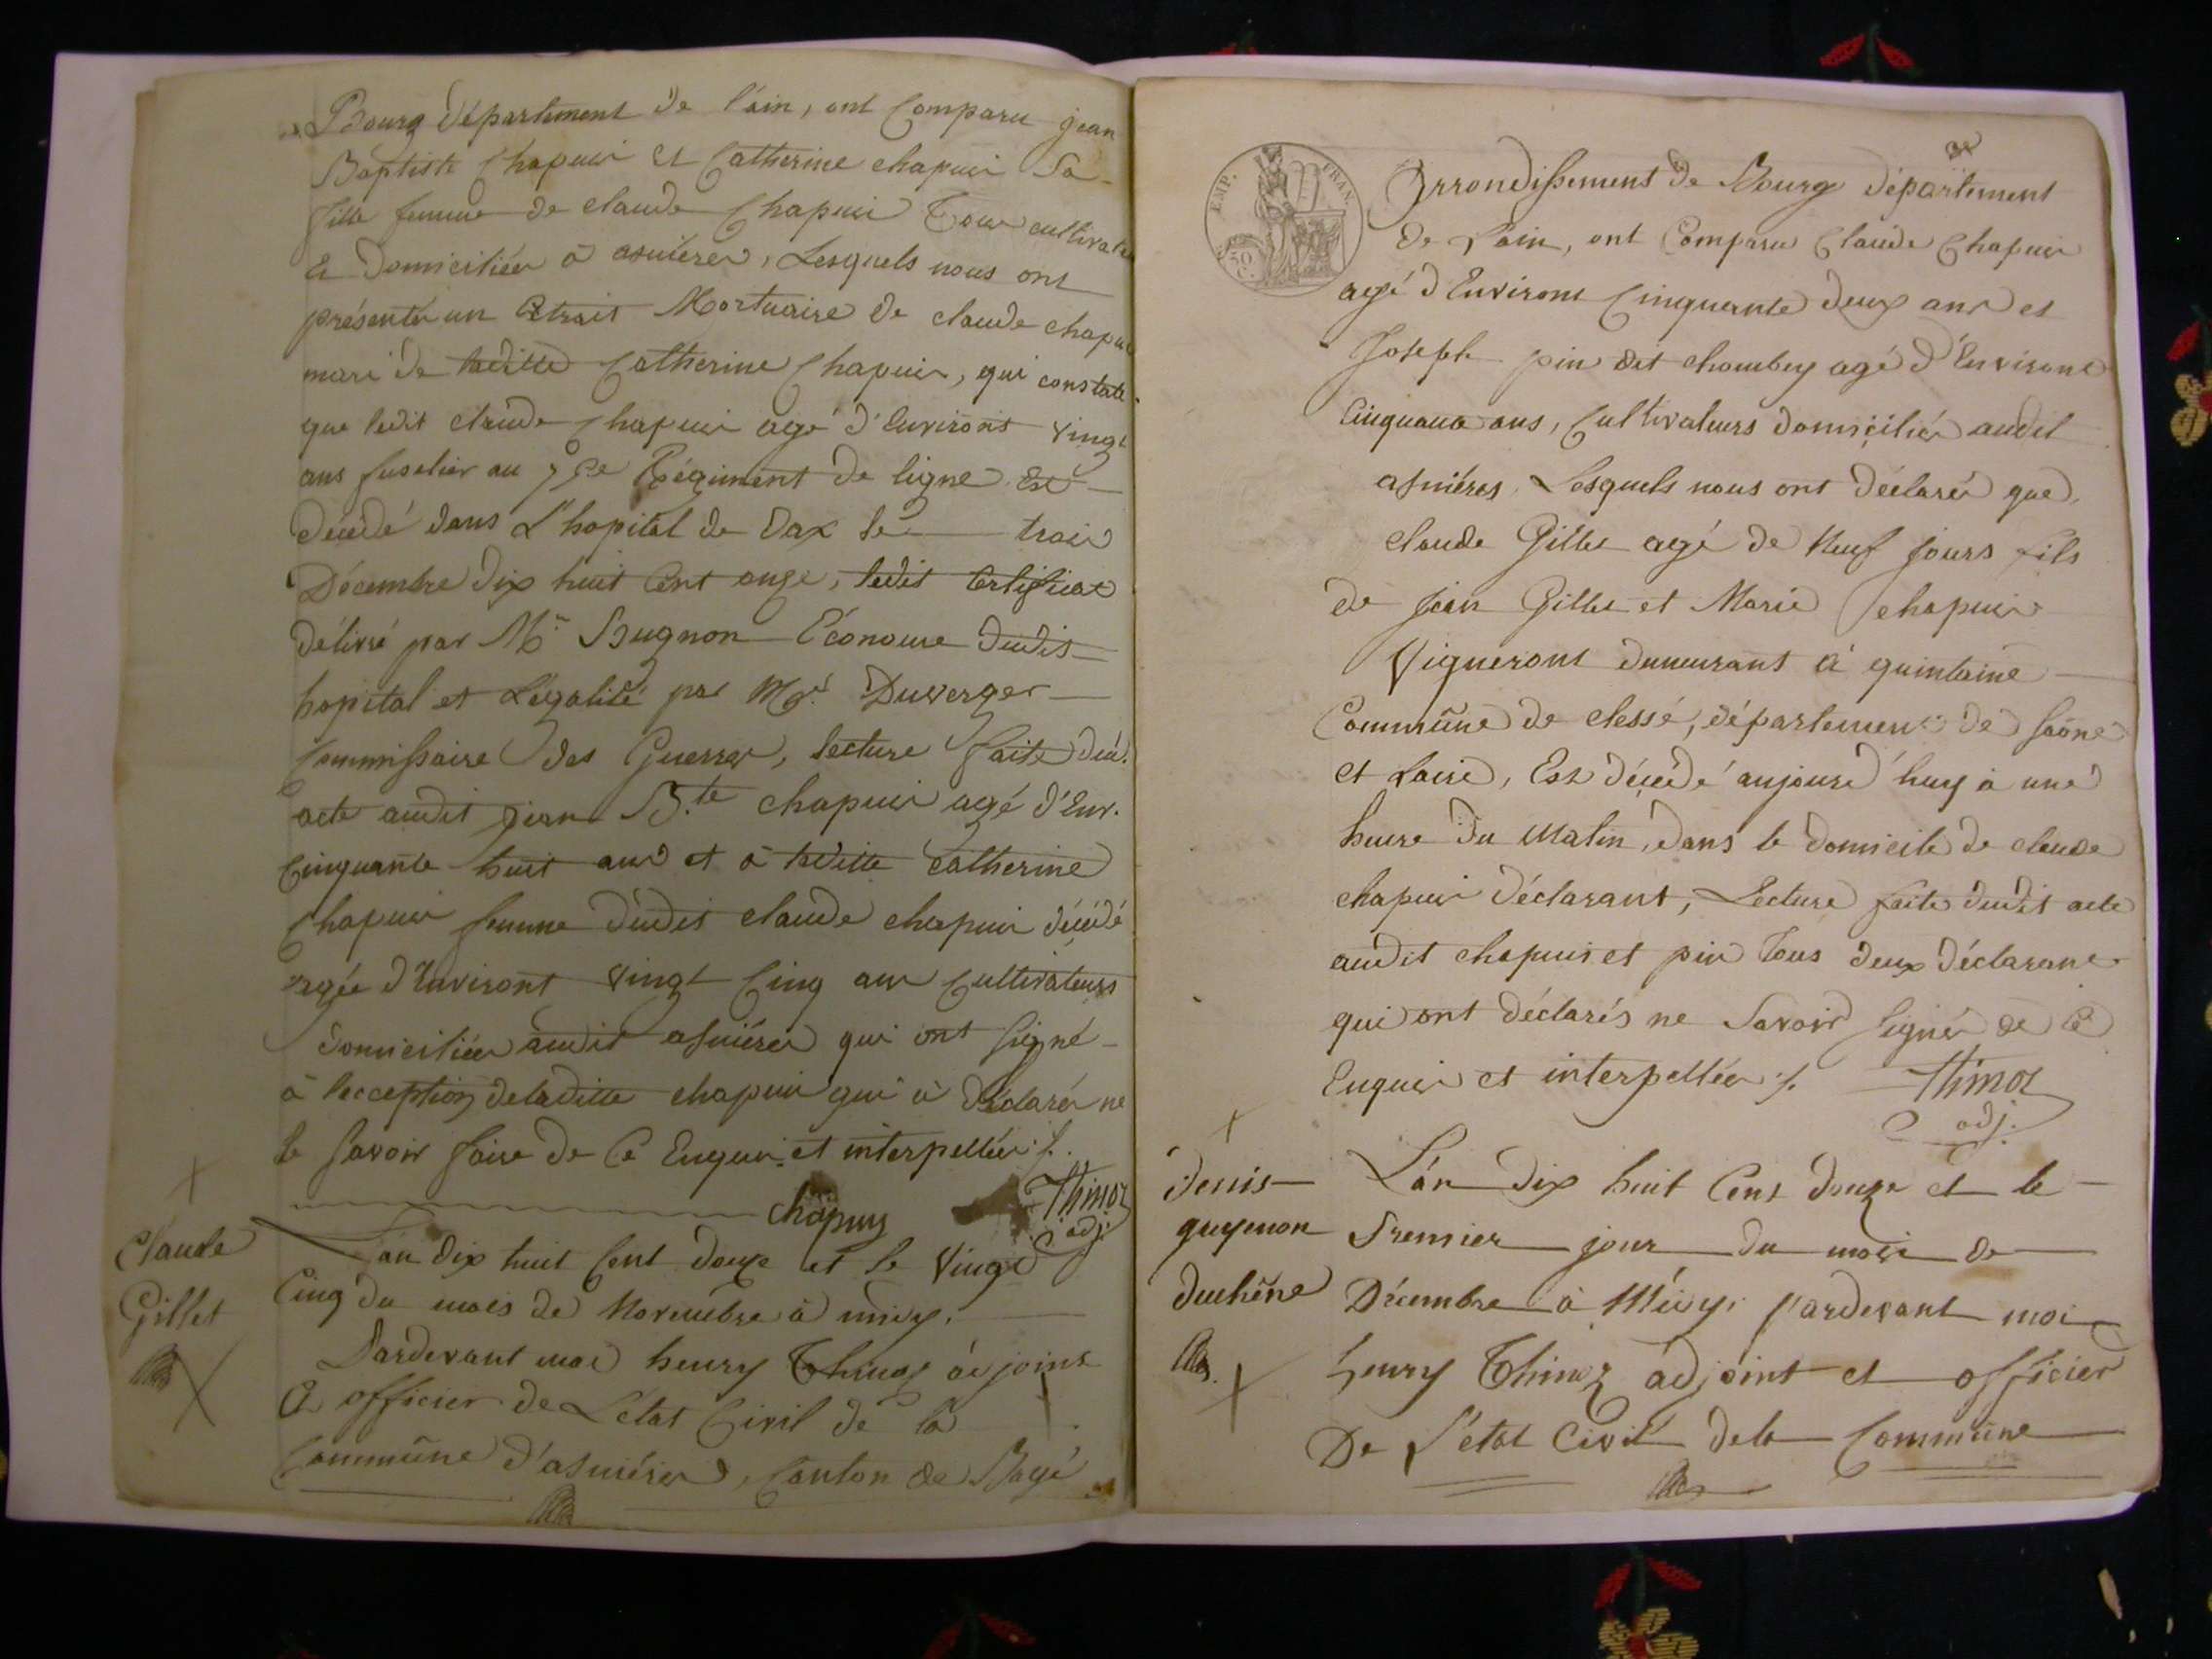 Bourg département de l'ain, ont Comparu jean
Baptiste Chapuis et Catherine chapuis Sa
fille femme de claude Chapuis Tous cultivate
& domiciliés à asnières, Lesquels nous ont
présentés un Extrait Mortuaire de claude chapui
mari de laditte Catherine Chapuis, qui constate
que ledit claude Chapuis agé d'Environt vingt
ans fuselier au Régiment de ligne Est
décédé dans L'hopital de Dax le trois
Décembre dix huit Cent onze, ledit Certificat
délivré par Mr. Bugnon Économe dudit
hopital et Légalisé par Mgr. Duverger
Commissaire des Guerres, lecture faite dud.
acte audit jean B.te chapuis agé d'Env.
Cinquante huit ans et à laditte Catherine
Chapuis femme dudit claude chapuis décédé
agée d'Environt vingt Cinq ans Cultivateurs
domiciliés audit asnières qui ont signé
à l'ecception deladitte chapuis qui à déclarés ne
le savoir faire de Ce Enquis et interpellés ./.
chäpuy Thinoz
adj.
Claude
Gillet
L'an dix huit Cent douze et le vingt
Cinq du mois de Novembre à midy.
Pardevant moi henry Thinoz adjoint
& officier de L'état Civil de la
Commune d'asnières, Canton de Bagé
EMP. FRAN.
50
C.
Arrondissement de Bourg département
de L'ain, ont Comparu Claude Chapuis
agé d'Environt Cinquante deux ans et
Joseph pin dit chambey agé d'Environt
Cinquante ans, Cultivateurs domiciliés audit
asnières, Lesquels nous ont déclarés que
claude Gillet agé de Neuf jours fils
de jean Gillet et Marie chapuis
Vigneront demeurant à quintaine
Commune de clessé, département de Saône
et Loire, Est décédé aujourd'huy à une
heure du Matin, dans le domicile de claude
chapuis déclarant, Lecture faite dudit acte
audit chapuis et pin tous deux déclarant
qui ont déclarés ne savoir signer de Ce
Enquis et interpellés ./. Thinoz
adj.
Denis
guyenon
duchêne
L'an dix huit Cent douze et le
Premier jour du mois de
Décembre à Midy. Pardevant moi
henry Thinoz adjoint et officier
De l'état Civil de la Commune